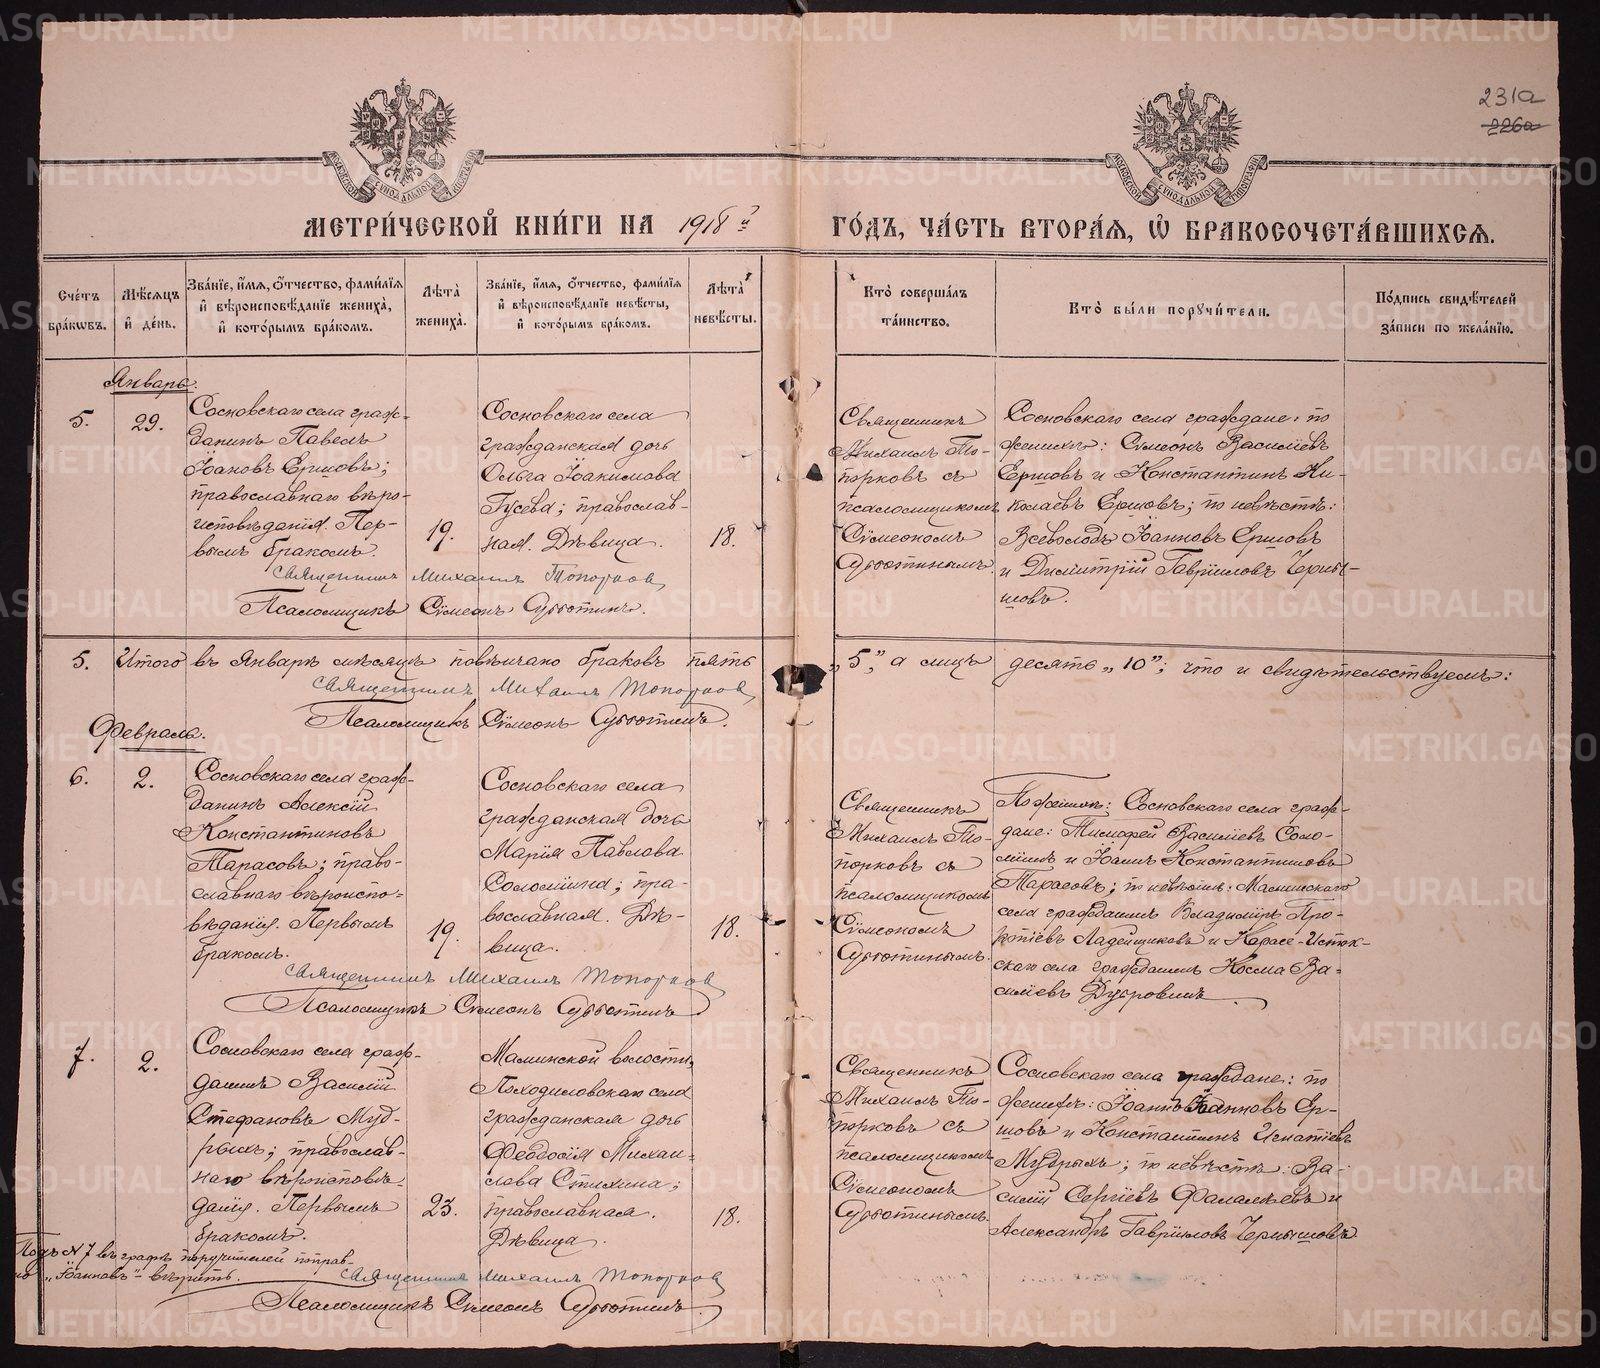 231а
226а
МОСКОВСКОЙ СѴНОДАЛЬНОЙ ТИПОГРАФІИ
МОСКОВСКОЙ СѴНОДАЛЬНОЙ ТИПОГРАФІИ
МЕТРИ́ЧЕСКОЙ КНИ́ГИ НА 1918й ГО́ДЪ, ЧА́СТЬ ВТОРА́Я, Ѿ БРАКОСОЧЕТА́ВШИХСЯ.
Сче́тъ
бра́кѡвъ.
Мѣ́сяцъ
и҆ де́нь.
Зва́нїе, и҆́мя, ѻ҆́тчество, фами́лїя
и҆ вѣроисповѣ́данїе жениха̀,
и҆ кото́рымъ бра́комъ.
Лѣта̀
жениха̀.
Зва́нїе, и҆́мя, ѻ҆́тчество, фами́лїя
и҆ вѣроисповѣ́данїе невѣ́сты,
и҆ кото́рымъ бра́комъ.
Лѣта̀
невѣ́сты.
Кто̀ соверша́лъ
та́инство.
Кто̀ бы́ли порꙋчи́тели.
По́дпись свидѣ́телей
за́писи по жела́нїю.
Январь.
5.
29.
Сосновскаго села граж-
данинъ Павелъ
Іоановъ Ершовъ;
православнаго вѣро-
исповѣданія. Пер-
вымъ бракомъ.
19.
Сосновскаго села
гражданская дочь
Ольга Іоакимова
Гусева; православ-
ная. Дѣвица.
18.
Священникъ
Михаилъ То-
порковъ съ
псаломщикомъ
Сѵмеономъ
Субботинымъ.
Сосновскаго села граждане: по
женихѣ: Сѵмеонъ Василіевъ
Ершовъ и Константинъ Ни-
колаевъ Ершовъ; по невѣстѣ:
Всеволодъ Іоанновъ Ершовъ
и Димитрій Гавріиловъ Черны-
шовъ.
Священникъ Михаилъ Топорковъ
Псаломщикъ Сѵмеонъ Субботинъ.
5. Итого въ Январѣ мѣсяцѣ повѣнчано браковъ пять „5", а лицъ десять „10"; что и свидѣтельствуемъ:
Священникъ Михаилъ Топорковъ
Псаломщикъ Сѵмеонъ Субботинъ.
Февраль.
6.
2.
Сосновскаго села граж-
данинъ Алексій
Константиновъ
Тарасовъ; право-
славнаго вѣроиспо-
вѣданія. Первымъ
бракомъ.
19.
Сосновскаго села
гражданская дочь
Марія Павлова
Соломина; пра-
вославная. Дѣ-
вица.
18.
Священникъ
Михаилъ То-
порковъ съ
псаломщикомъ
Сѵмеономъ
Субботинымъ.
По женихѣ: Сосновскаго села граж-
дане: Тимофей Василіевъ Соло-
минъ и Іоаннъ Константиновъ
Тарасовъ; по невѣстѣ: Маминскаго
села гражданинъ Владиміръ Про-
копіевъ Ладейщиковъ и Карасе-Исток-
скаго села гражданинъ Косма Ва-
силіевъ Дубровинъ.
Священникъ Михаилъ Топорковъ
Псаломщикъ Сѵмеонъ Субботинъ
7.
2.
Сосновскаго села граж-
данинъ Василій
Стефановъ Муд-
рыхъ; православ-
наго вѣроисповѣ-
данія. Первымъ
бракомъ.
23.
Маминской волости,
Походиловскаго села
гражданская дочь
Феодосія Михаи-
лова Стихина;
православная.
Дѣвица.
18.
Священникъ
Михаилъ То-
порковъ съ
псаломщикомъ
Сѵмеономъ
Субботинымъ.
Сосновскаго села граждане: по
женихѣ: Іоаннъ Іоанновъ Ер-
шовъ и Константинъ Игнатіевъ
Мудрыхъ; по невѣстѣ: Ва-
силій Сергіевъ Фалалѣевъ и
Александръ Гавріиловъ Чернышовъ
Подъ № 7 въ графѣ поручителей поправ-
но „Іоанновъ" - вѣрить.
Священникъ Михаилъ Топорковъ
Псаломщикъ Сѵмеонъ Субботинъ.
METRIKI.GASO-URAL.RU